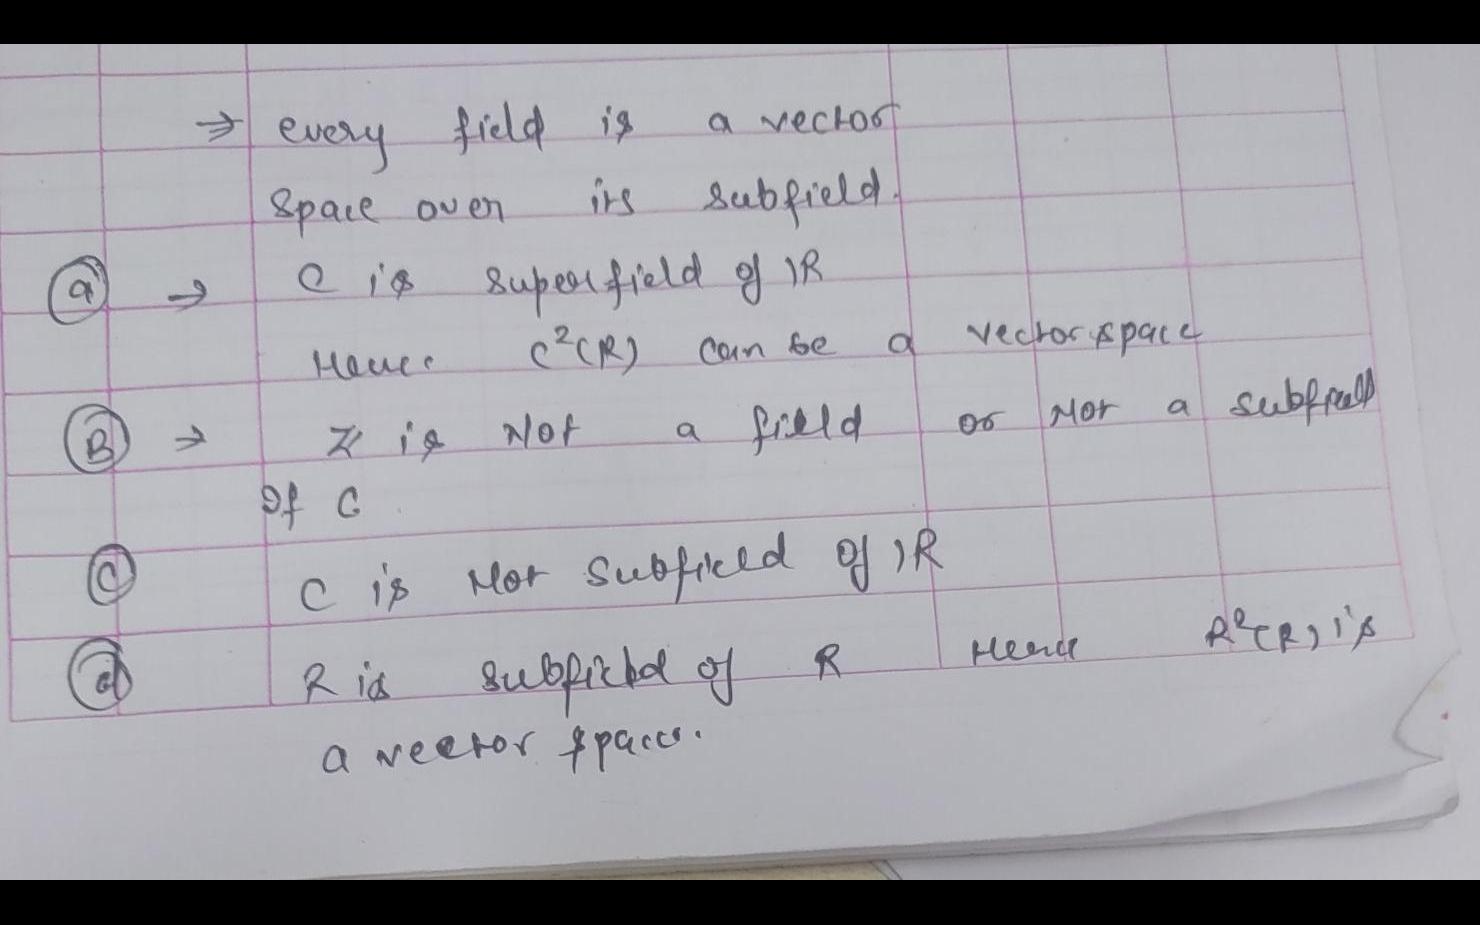 ⇒ every field is a vector
space over its subfield.
(a) → C is superfield of IR
Hence C²(R) can be a vector space
(B) → Z is Not a field or Not a subfield
of C.
(C) C is Not subfield of IR
(d) R is subfield of R Hence R²(R) is
a vector space.